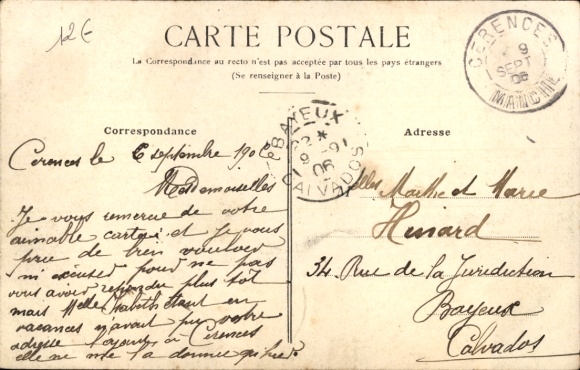 12€
CARTE POSTALE
La Correspondance au recto n'est pas acceptée par tous les pays étrangers
(Se renseigner à la Poste)
CERENCES
9
SEPT
06
MANCHE
BAYEUX
9-9
06
CALVADOS
Correspondance
Cerences le 6 septembre 1906
Mesdemoiselles
Je vous remercie de votre
aimable carte et je vous
prie de bien vouloir
m'excuser pour ne pas
vous avoir répondre plus tôt
mais Melle étant en
vacances n'avait pu votre
adresse à Cerences
elle ne me l'a donnée qu'hier
Adresse
Melles Marthe et Marie
Hinard
34 Rue de la Juridiction
Bayeux
Calvados